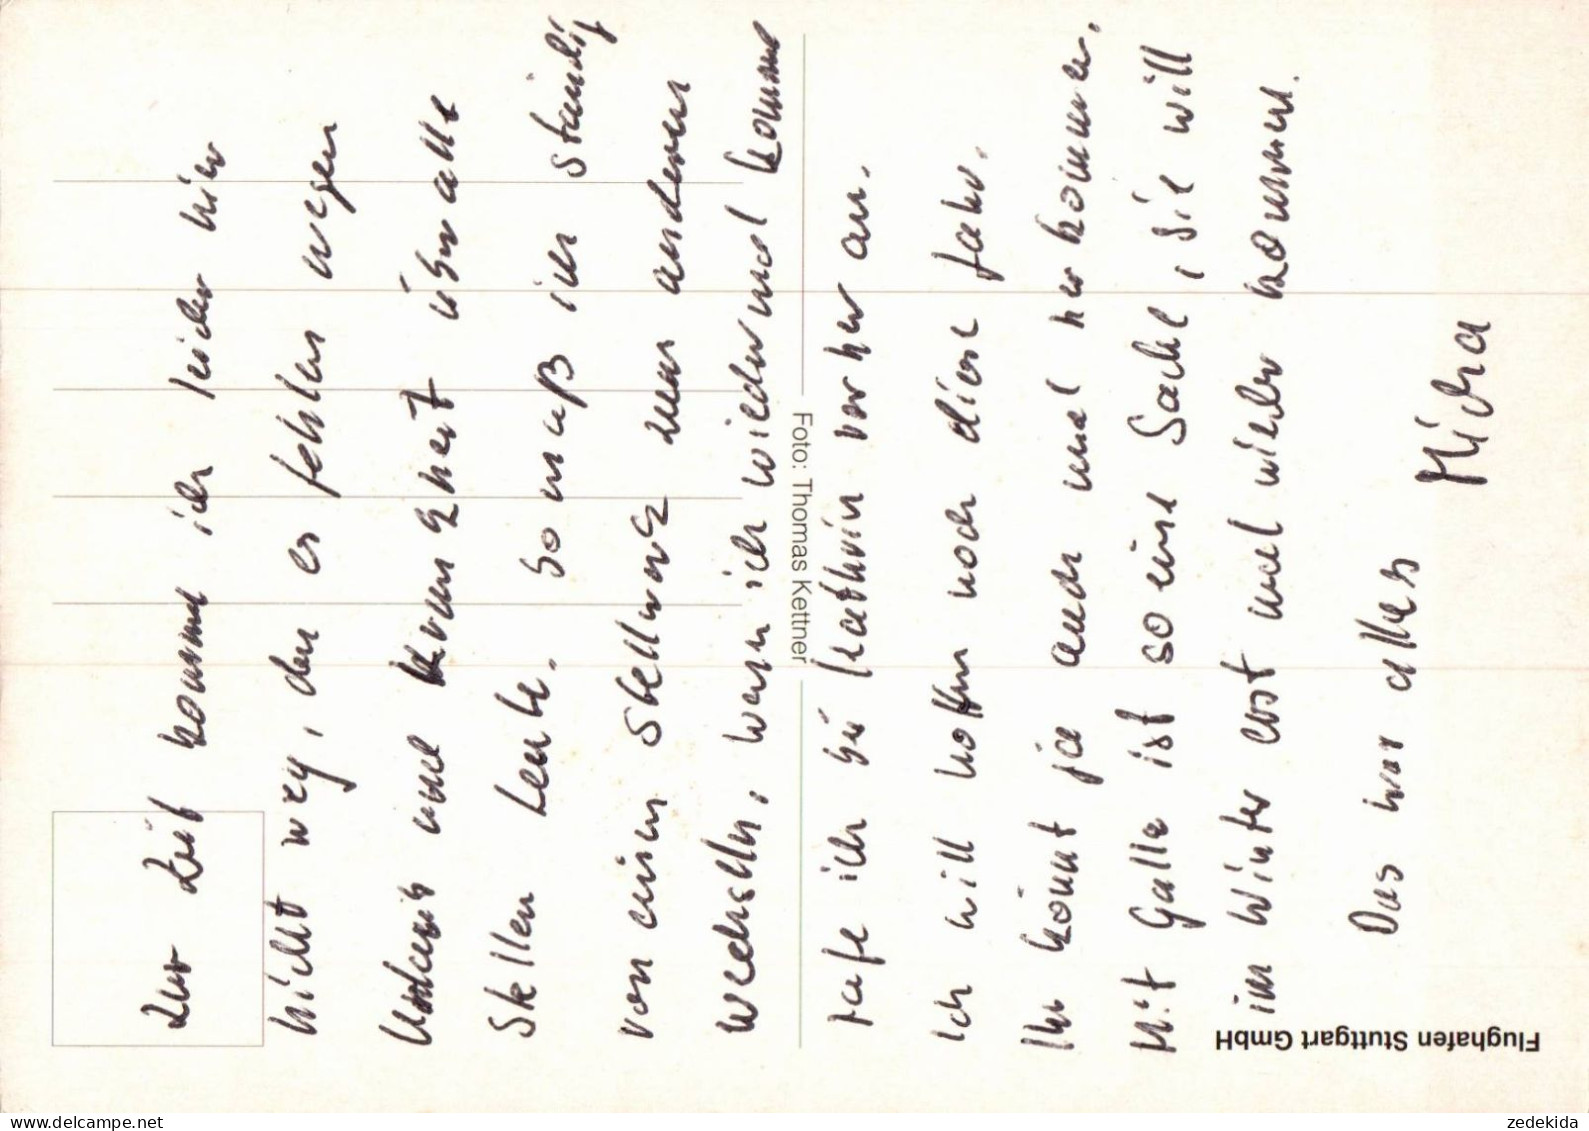 Zur Zeit komme ich leider hier
nicht weg, den es fehlen wegen
Urlaub und Krankheit überalle
Stellen Leute. So muß ich ständig
von einem Stellwerk zum anderen
wechseln, wenn ich wiedermal komme
rufe ich bei Kathrin vorher an.
Ich will hoffen noch diese Jahr.
Ihr könnt ja auch mal herkommen.
Mit Galle ist so eine Sache, sie will
im Winter erst mal wieder kommen.
Das war alles
Micha
Foto: Thomas Kettner
Flughafen Stuttgart GmbH
delcampe.net
zedekida